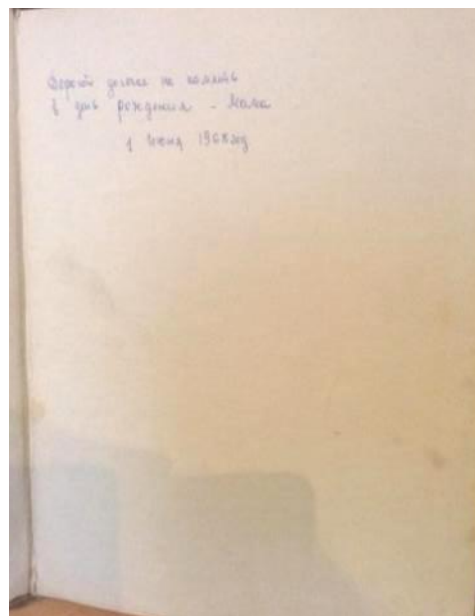 Дорогой дочке на память
в день рождения - Мама
1 июня 1968 год